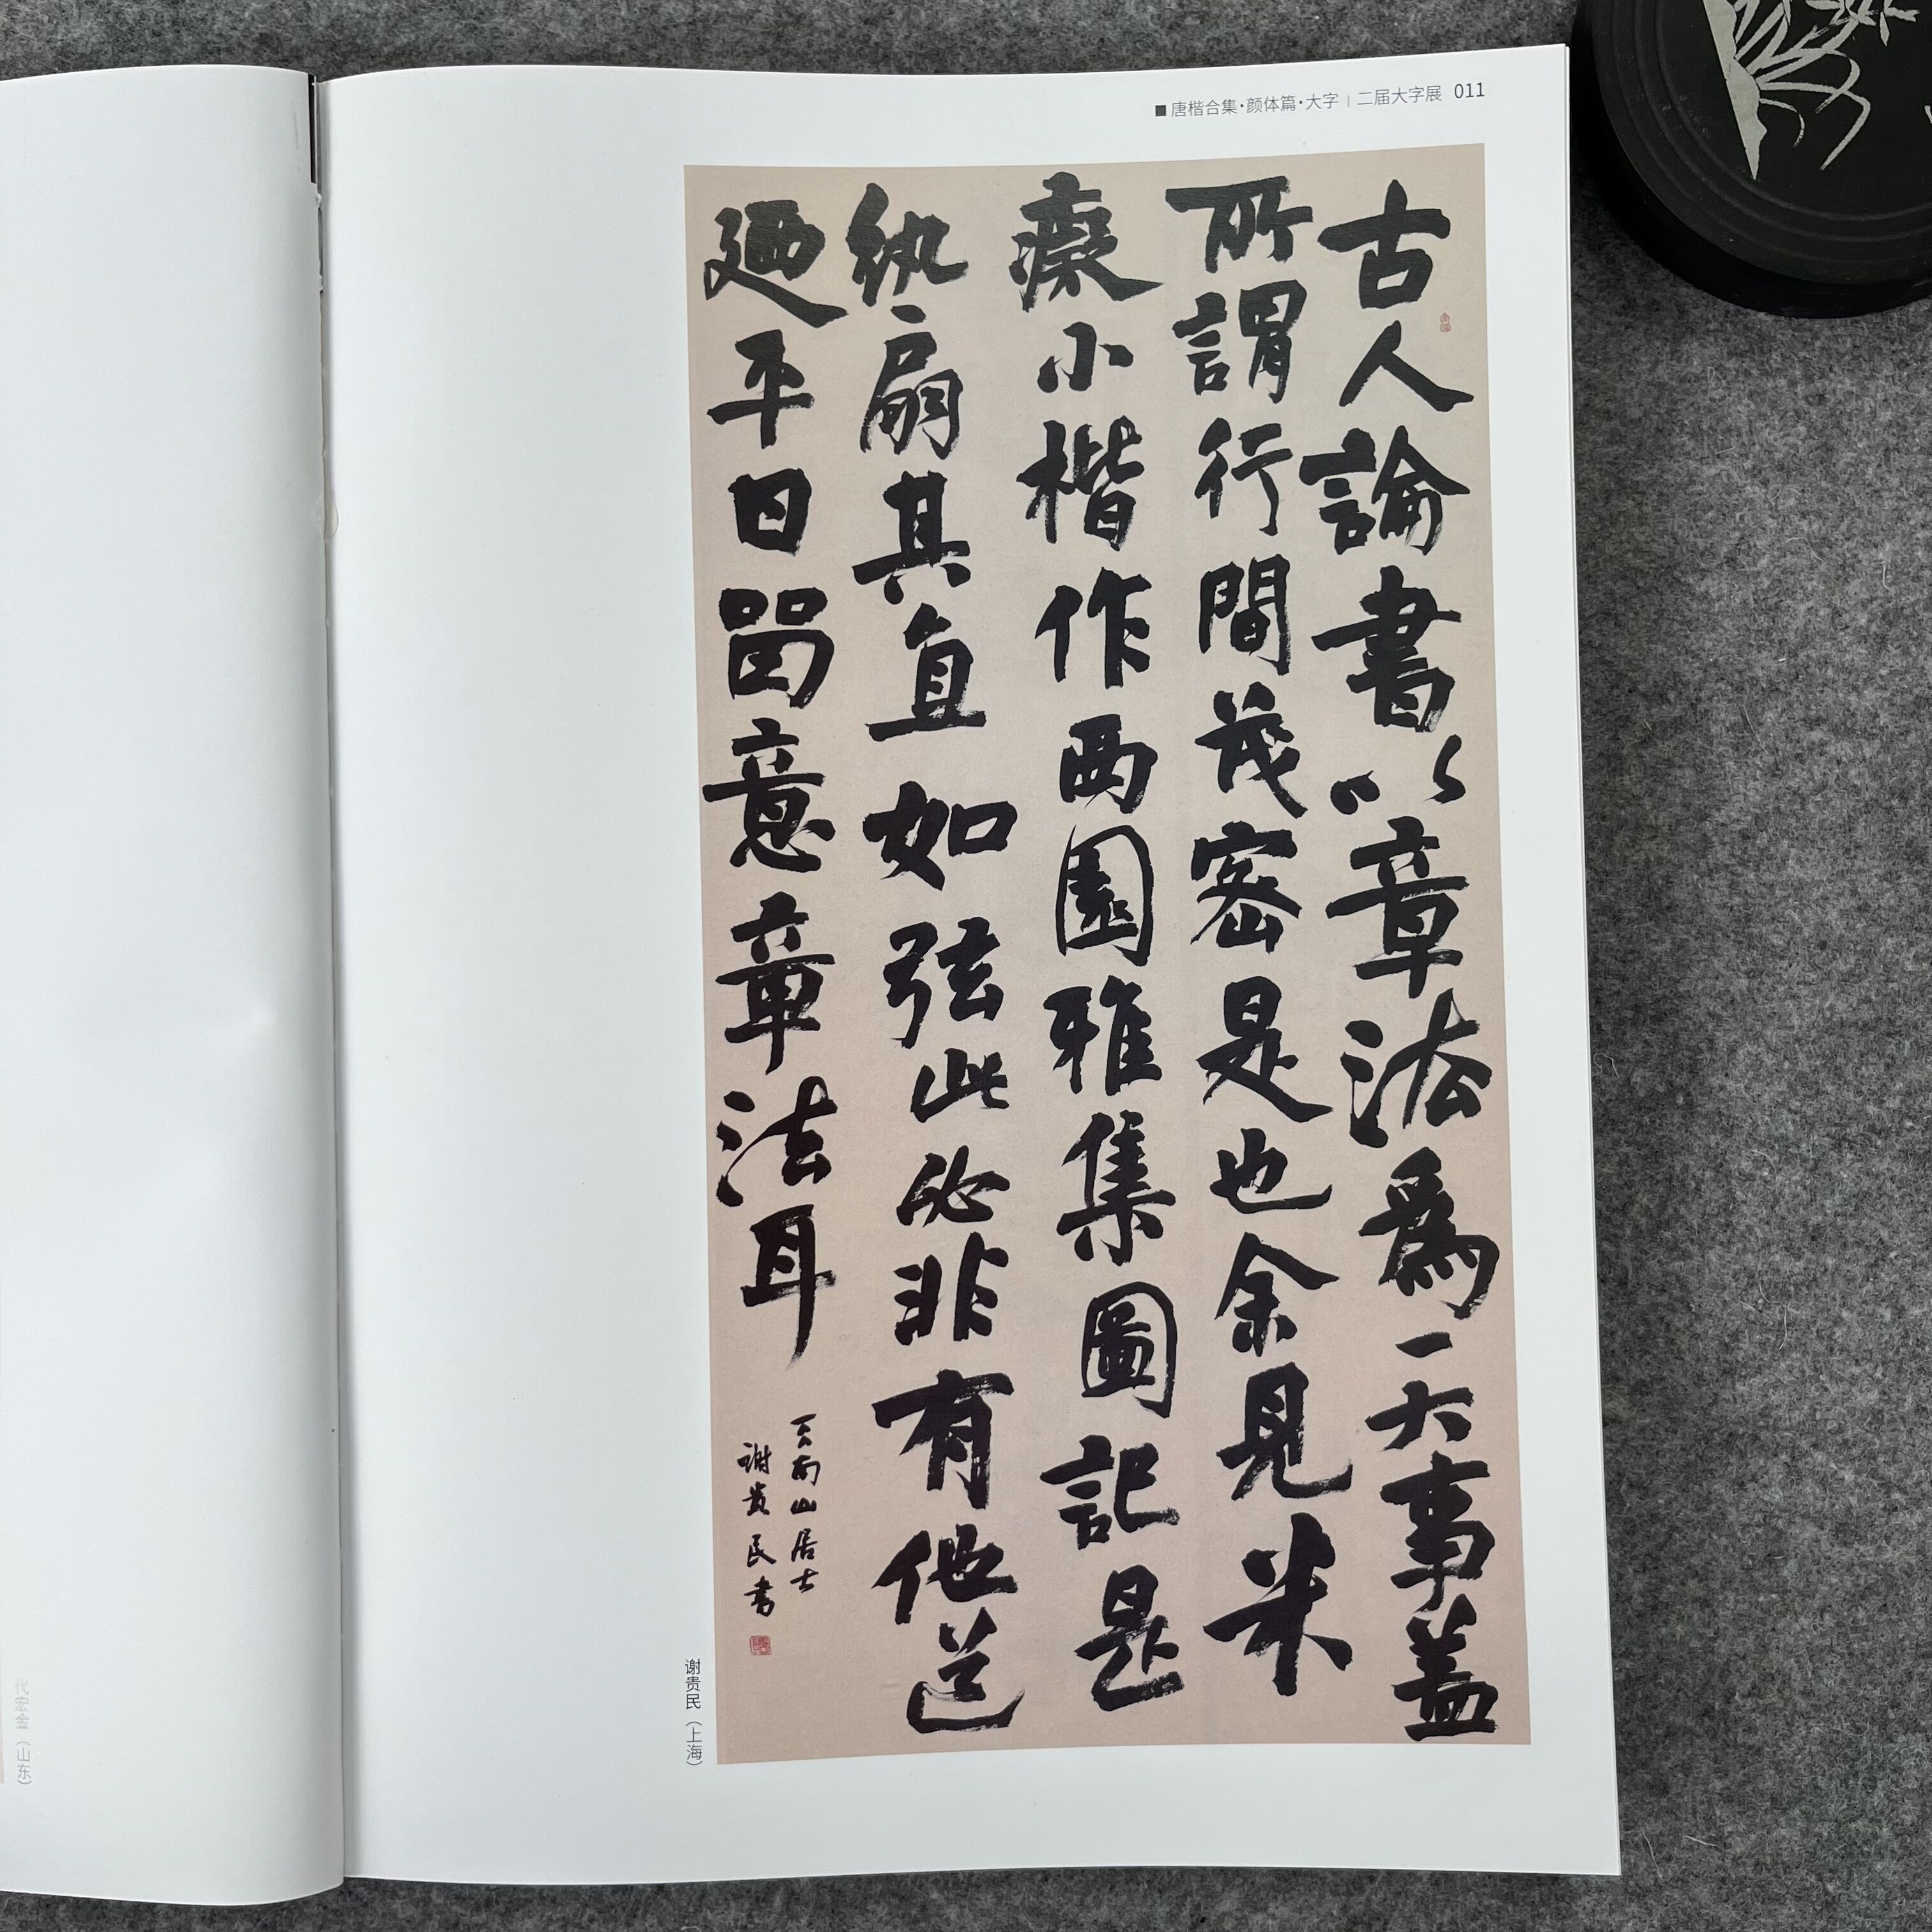 ■唐楷合集·颜体篇·大字 | 二届大字展 011
古人論書以章法為一大事蓋
所謂行間茂密是也余見米
癡小楷作西園雅集圖記是
紈扇其直如弦此必非有他道
廼平日留意章法耳
山居士
謝貴民书
谢贵民（上海）
代宏金（山东）